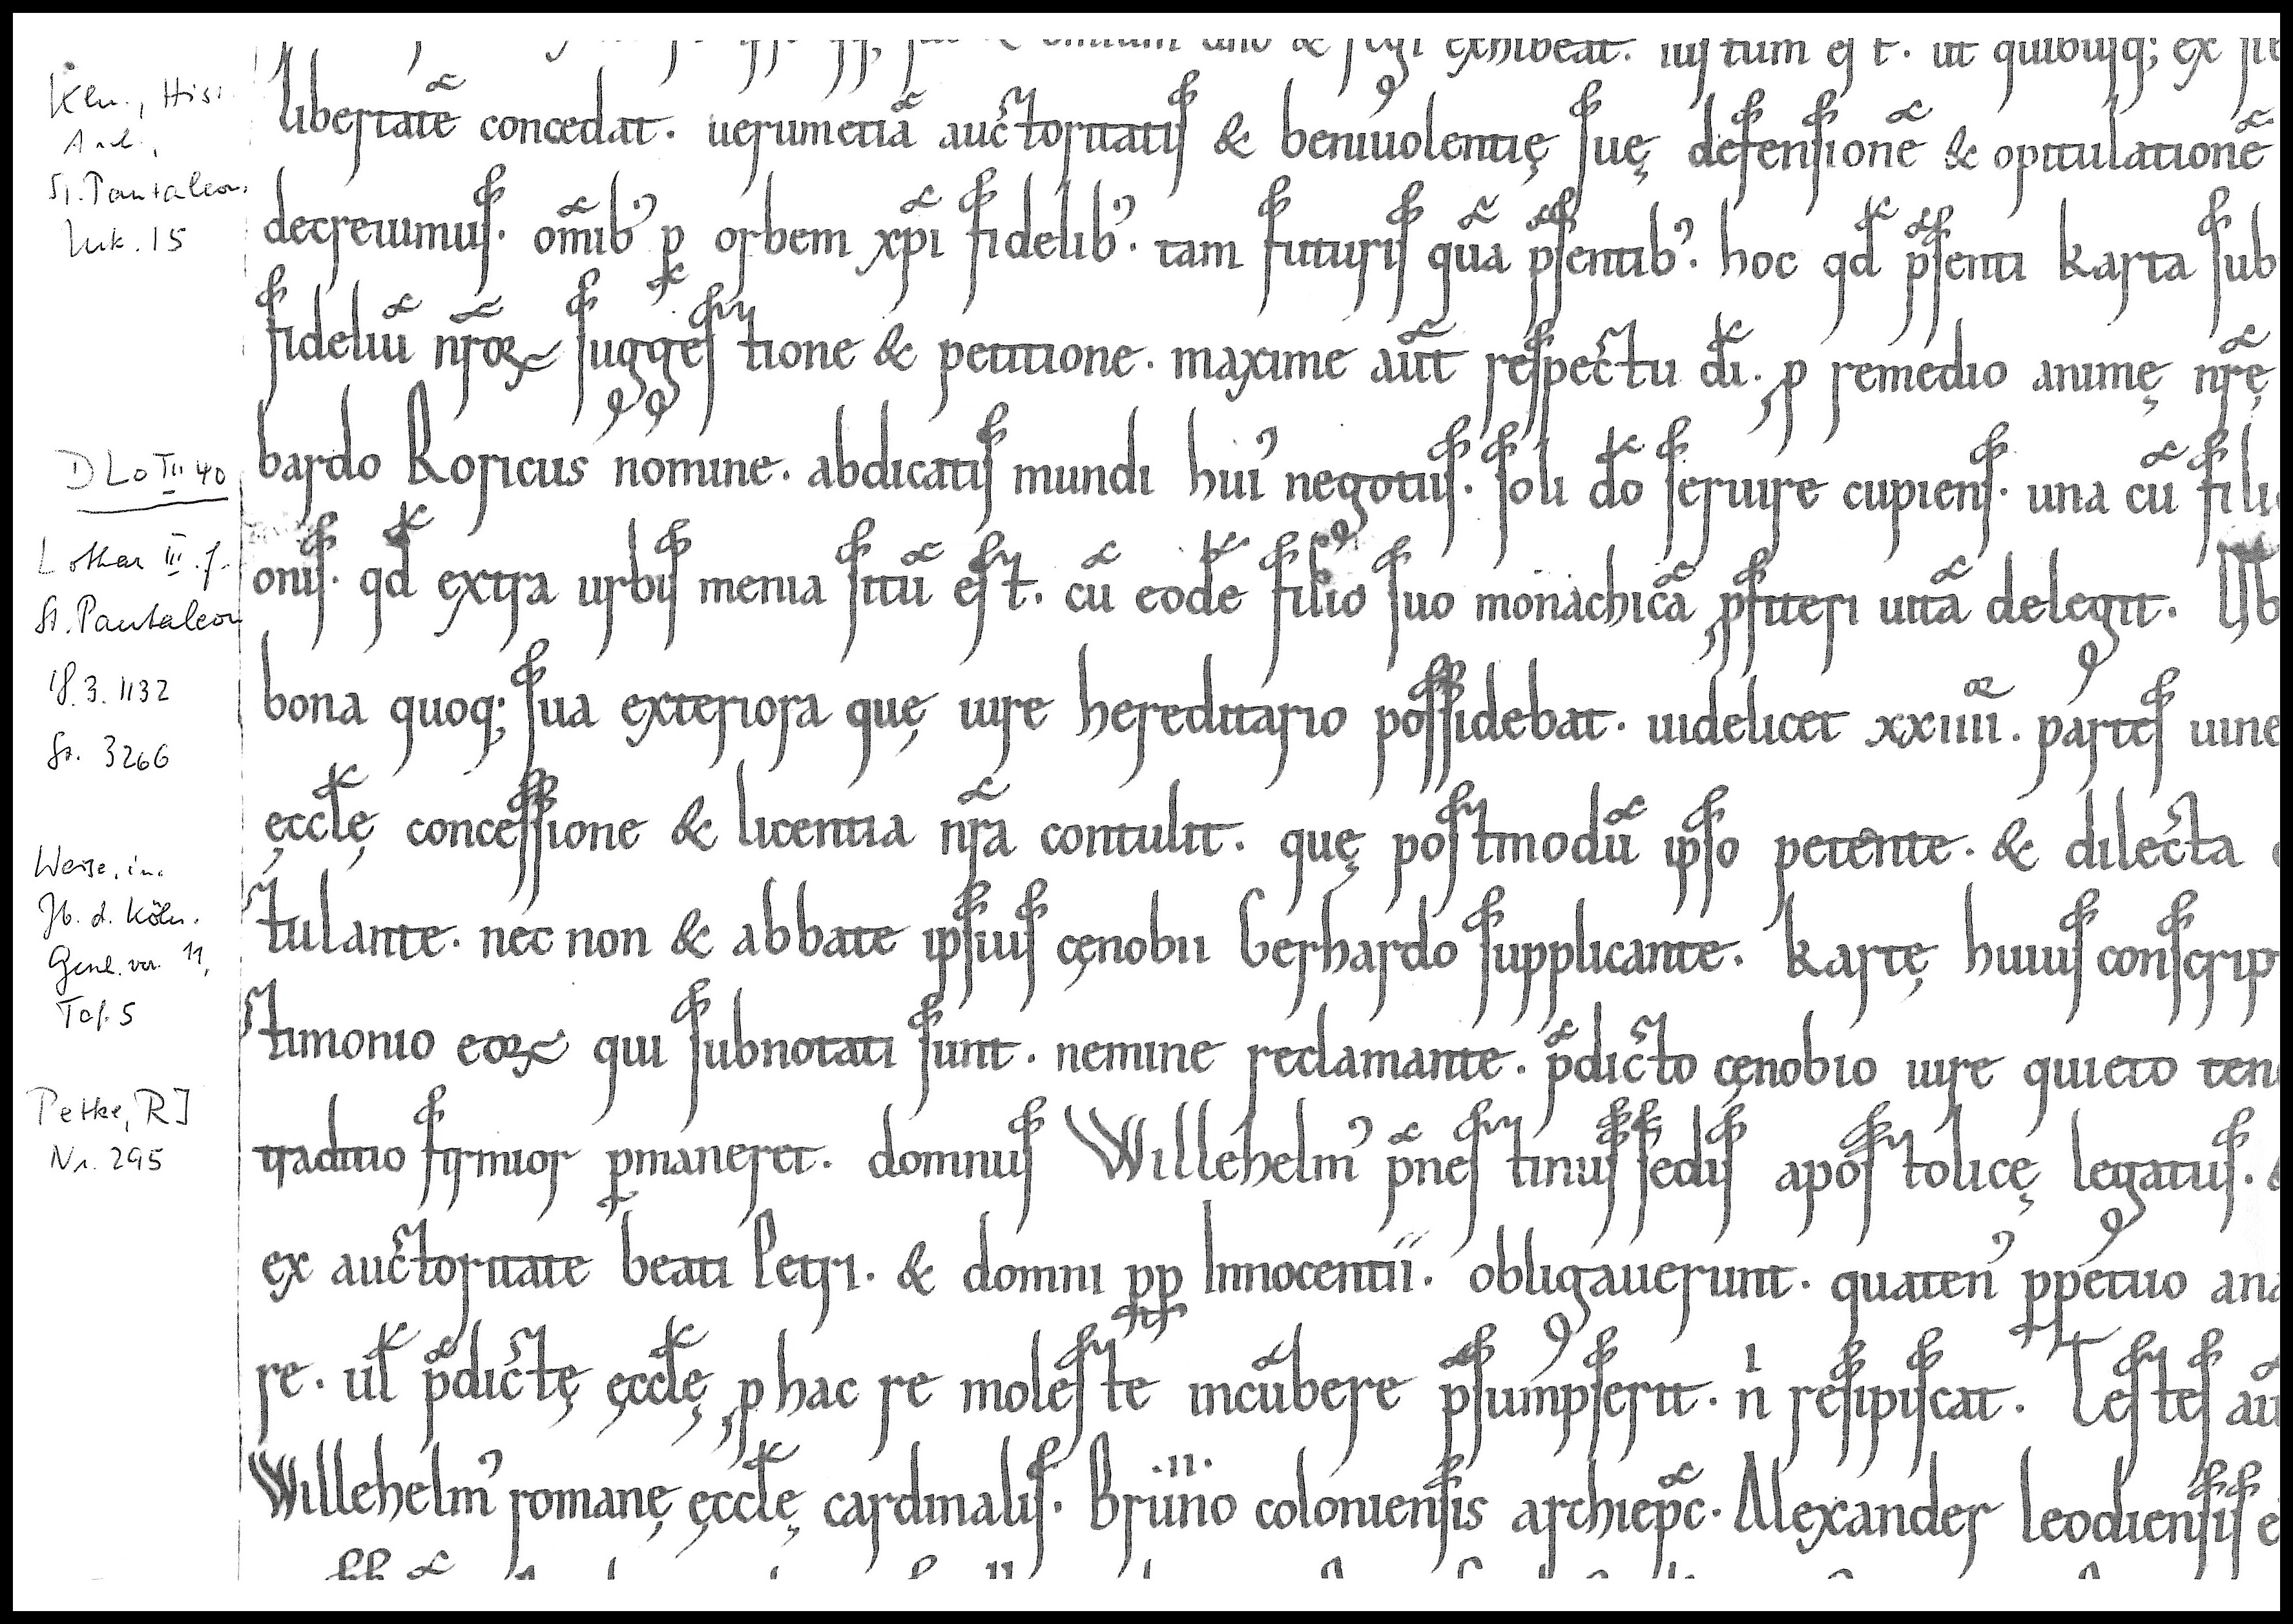 Köln, Hist.
Arch.,
St. Pantaleon,
Urk. 15
D Lo III 40
Lothar III. f.
St. Pantaleon
18.3.1132
St. 3266
Weise, in:
Jb. d. Köln.
Taf. 5
Petke, RJ
Nr. 295
exhibeat. iustum est. ut quibusq; ex
libertatē concedat. uerumetiā auctoritatis & beniuolentię suę defensionē & opitulationē
decreuimus. om̄ib' p orbem xp̄i fidelib'. tam futuris quā p̄sentib'. hoc qd̄ p̄senti karta sub
fideliū nr̄oꝝ suggestione & petitione. maxime aūt respectu dī. ꝓ remedio animę nr̄ę
bardo Roricus nomine. abdicatis mundi hui' negotiis. soli dō seruire cupiens. una cū fili
onis. qd̄ extra urbis menia sitū est. cū eodē filio suo monachicā ꝓfiteri uitā delegit. Vb
bona quoq; sua exteriora quę iure hereditario possidebat. uidelicet xxiiii. partes uine
ęccl̄ę concessione & licentia nr̄a contulit. quę postmodū ipso petente. & dilecta
stulante. nec non & abbate ipsius cęnobii Gerhardo supplicante. kartę huius conscrip
stimonio eoꝝ qui subnotati sunt. nemine reclamante. p̄dicto cęnobio iure quieto ten
traditio firmior ꝑmaneret. domnus Willehelm' p̄nestinus sedis apostolicę legatus.
ex auctoritate beati Petri. & domni pp Innocentii. obligauerunt. quaten' ꝑpetuo ana
re. ul̄ p̄dictę ęccl̄ę ꝓ hac re moleste incūbere p̄sumpserit. n̄ resipiscat. Testes aū
Willehelm' romanę ęccl̄ę cardinalis. Brüno coloniensis archiep̄c. Alexander leodiensis e